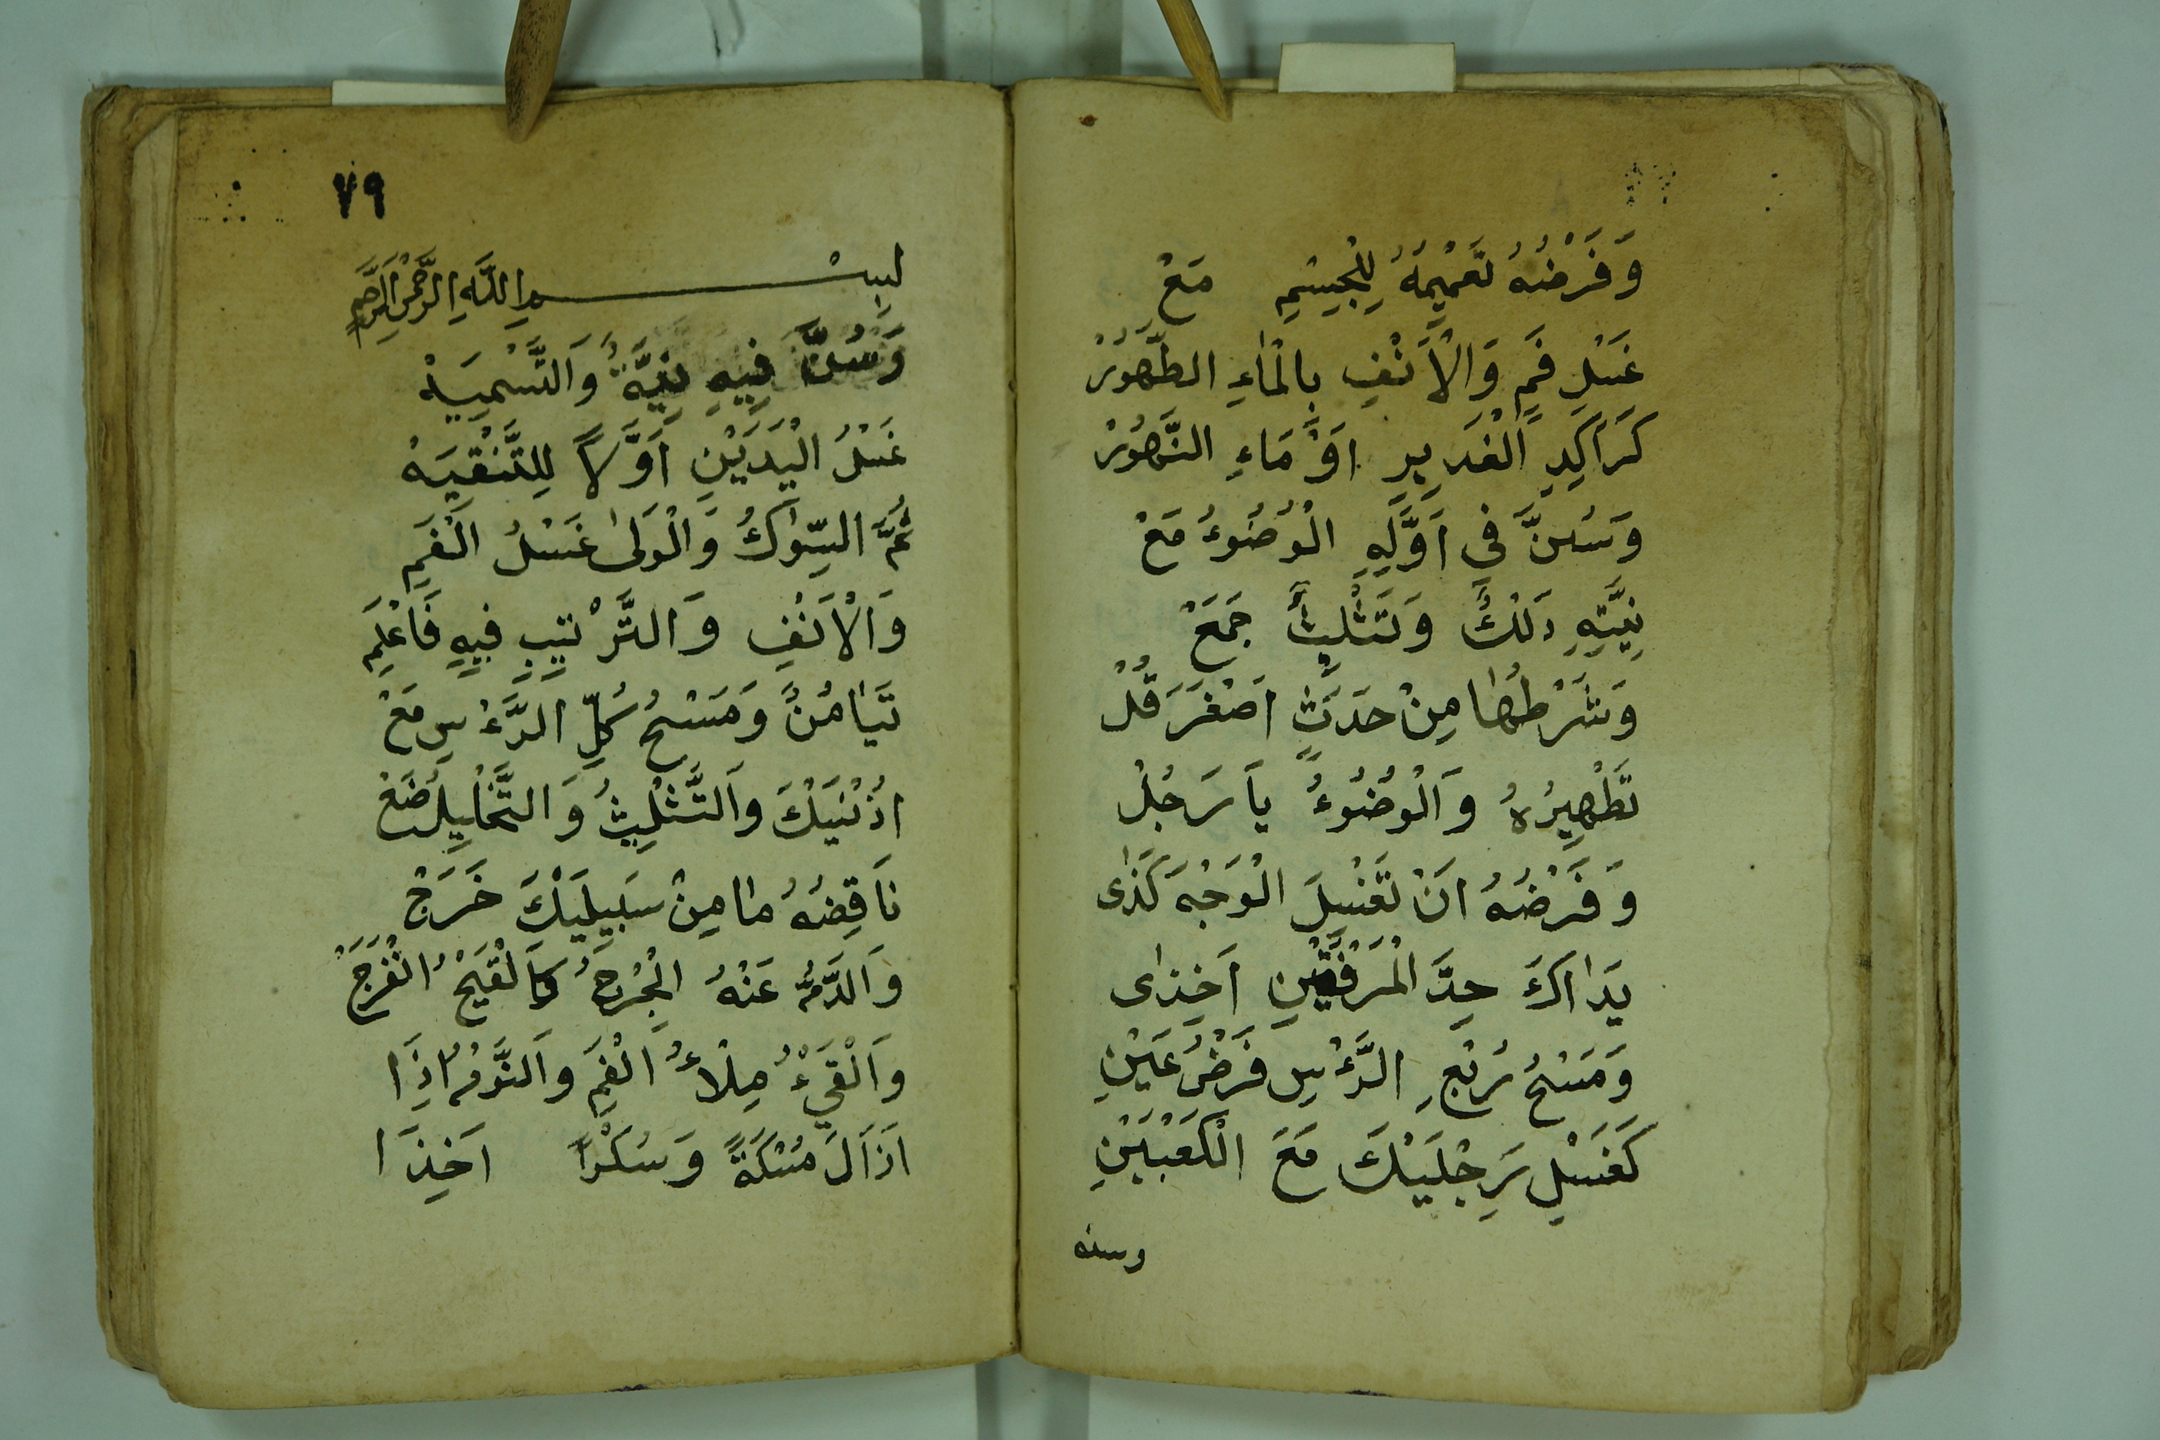 وَفَرْضُهُ تَعْمِيمُهُ لِلْجِسْمِ مَعْ
غَسْلِ فَمٍ وَالْأَنْفِ بِالْمَاءِ الطَّهُورْ
كَرَاكِدِ الْغَدِيرِ اَوْ مَاءِ النَّهُورْ
وَسُنَّ فِي اَوَّلِهِ الْوُضُوءُ مَعْ
نِيَّتِهِ دَلْكٌ وَتَثْلِيثٌ جَمَعْ
وَشَرْطُهَا مِنْ حَدَثٍ اَصْغَرَ قُلْ
تَطْهِيرُهُ وَالْوُضُوءُ يَا رَجُلْ
وَفَرْضُهُ اَنْ تَغْسِلَ الْوَجْهَ كَذٰى
يَدَاكَ حِدَّ الْمَرْفَقَيْنِ اَخِذٰى
وَمَسْحُ رُبْعِ الرَّءْسِ فَرْضُ عَيْنِ
كَغَسْلِ رِجْلَيْكَ مَعَ الْكَعْبَيْنِ
وسنه
٧٩
بِسْمِ اللَّهِ الرَّحْمٰنِ الرَّحِيمِ
وَسُنَّ فِيهِ نِيَّةٌ وَالتَّسْمِيَهْ
غَسْلُ الْيَدَيْنِ اَوَّلًا لِلتَّنْقِيَهْ
ثُمَّ السِّوَاكُ وَالْوَلٰى غَسْلُ الْفَمِ
وَالْأَنْفِ وَالتَّرْتِيبِ فِيهِ فَاعْلَمِ
تَيَامُنٌ وَمَسْحُ كُلِّ الرَّءْسِ مَعْ
اُذْنَيْكَ وَالتَّثْلِيثُ وَالتَّخْلِيلُ ضَعْ
نَاقِضُهُ مَا مِنْ سَبِيلَيْكَ خَرَجْ
وَالدَّمُ عَنْهُ الْجُرْحُ كَالْقَيْحُ انْفَرَجْ
وَالْقَيْءُ مِلْاءُ الْفَمِ وَالنَّوْمُ اِذَا
اَزَالَ مُسْكَةً وَسُكْرًا اَخِذَا